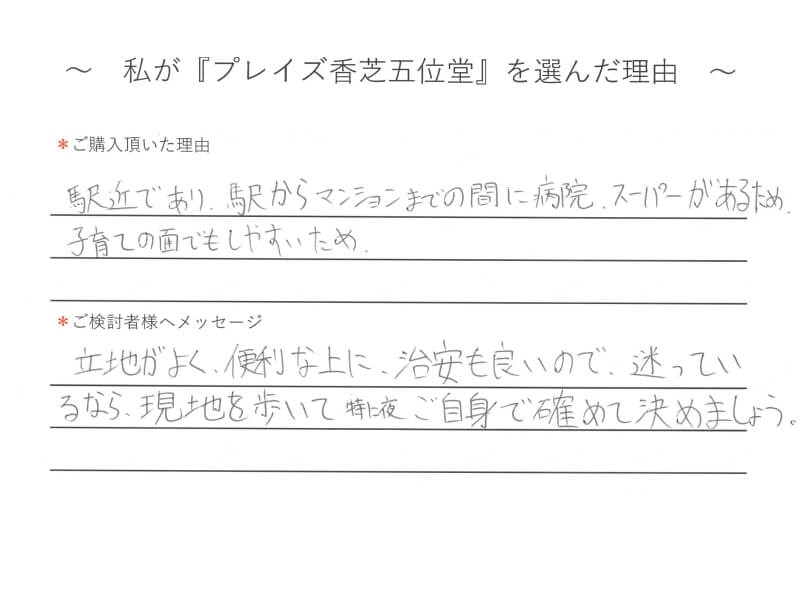 ～ 私が『プレイズ香芝五位堂』を選んだ理由 ～
*ご購入頂いた理由
駅近であり、駅からマンションまでの間に病院、スーパーがあるため、
子育ての面でもしやすいため、
*ご検討者様へメッセージ
立地がよく、便利な上に、治安も良いので、迷ってい
るなら、現地を歩いて 特に夜 ご自身で確めて決めましょう。